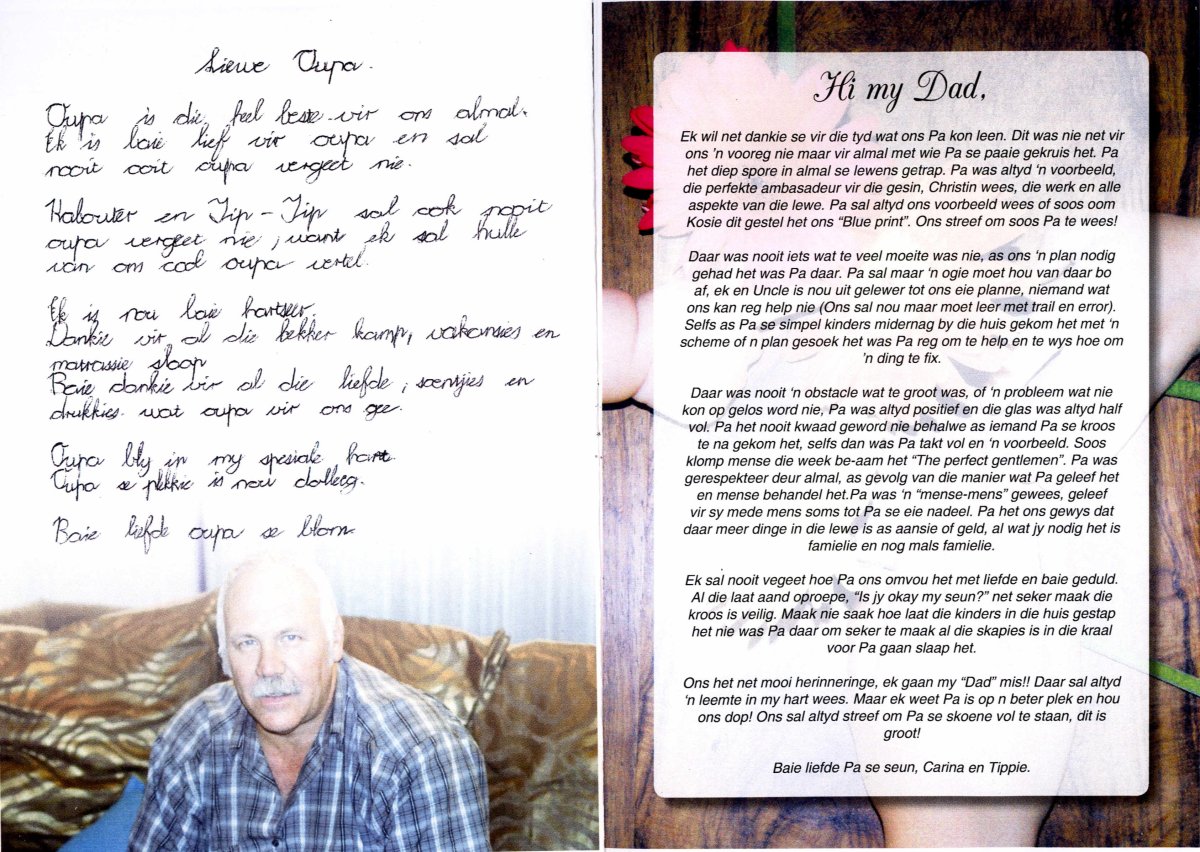 Liewe Oupa.
Oupa is die heel beste vir ons almal.
Ek is baie lief vir oupa en sal
nooit ooit oupa vergeet nie.
Kabouter en Tip-Tip sal ook nooit
oupa vergeet nie, want ek sal hulle
van ons cool oupa vertel.
Ek is nou baie hartseer.
Dankie vir al die lekker kamp, vakansies en
matrassie slaap
Baie dankie vir al die liefde, soentjies en
drukkies wat oupa vir ons gee.
Oupa bly in my spesiale hart.
Oupa se plekkie is nou dolleeg.
Baie liefde oupa se blom.
Hi my Dad,
Ek wil net dankie se vir die tyd wat ons Pa kon leen. Dit was nie net vir
ons 'n vooreg nie maar vir almal met wie Pa se paaie gekruis het. Pa
het diep spore in almal se lewens getrap. Pa was altyd 'n voorbeeld,
die perfekte ambasadeur vir die gesin, Christin wees, die werk en alle
aspekte van die lewe. Pa sal altyd ons voorbeeld wees of soos oom
Kosie dit gestel het ons “Blue print”. Ons streef om soos Pa te wees!
Daar was nooit iets wat te veel moeite was nie, as ons 'n plan nodig
gehad het was Pa daar. Pa sal maar 'n ogie moet hou van daar bo
af, ek en Uncle is nou uit gelewer tot ons eie planne, niemand wat
ons kan reg help nie (Ons sal nou maar moet leer met trail en error).
Selfs as Pa se simpel kinders midernag by die huis gekom het met 'n
scheme of n plan gesoek het was Pa reg om te help en te wys hoe om
'n ding te fix.
Daar was nooit 'n obstacle wat te groot was, of 'n probleem wat nie
kon op gelos word nie, Pa was altyd positief en die glas was altyd half
vol. Pa het nooit kwaad geword nie behalwe as iemand Pa se kroos
te na gekom het, selfs dan was Pa takt vol en 'n voorbeeld. Soos
klomp mense die week be-aam het “The perfect gentlemen”. Pa was
gerespekteer deur almal, as gevolg van die manier wat Pa geleef het
en mense behandel het.Pa was 'n “mense-mens” gewees, geleef
vir sy mede mens soms tot Pa se eie nadeel. Pa het ons gewys dat
daar meer dinge in die lewe is as aansie of geld, al wat jy nodig het is
famielie en nog mals famielie.
Ek sal nooit vegeet hoe Pa ons omvou het met liefde en baie geduld.
Al die laat aand oproepe, “Is jy okay my seun?” net seker maak die
kroos is veilig. Maak nie saak hoe laat die kinders in die huis gestap
het nie was Pa daar om seker te maak al die skapies is in die kraal
voor Pa gaan slaap het.
Ons het net mooi herinneringe, ek gaan my “Dad” mis!! Daar sal altyd
'n leemte in my hart wees. Maar ek weet Pa is op n beter plek en hou
ons dop! Ons sal altyd streef om Pa se skoene vol te staan, dit is
groot!
Baie liefde Pa se seun, Carina en Tippie.